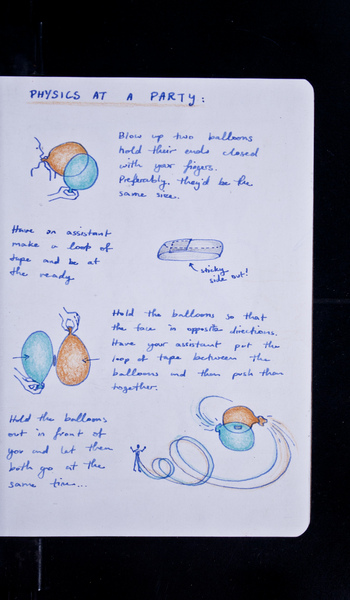 PHYSICS AT A PARTY:
Blow up two balloons
hold their ends closed
with your fingers.
Preferably, they'd be the
same size.
Have an assistant
make a loop of
tape and be at
the ready
sticky
side out!
Hold the balloons so that
the face in opposite directions.
Have your assistant put the
loop of tape between the
balloons and then push them
together.
Hold the balloons
out in front of
you and let them
both go at the
same time...